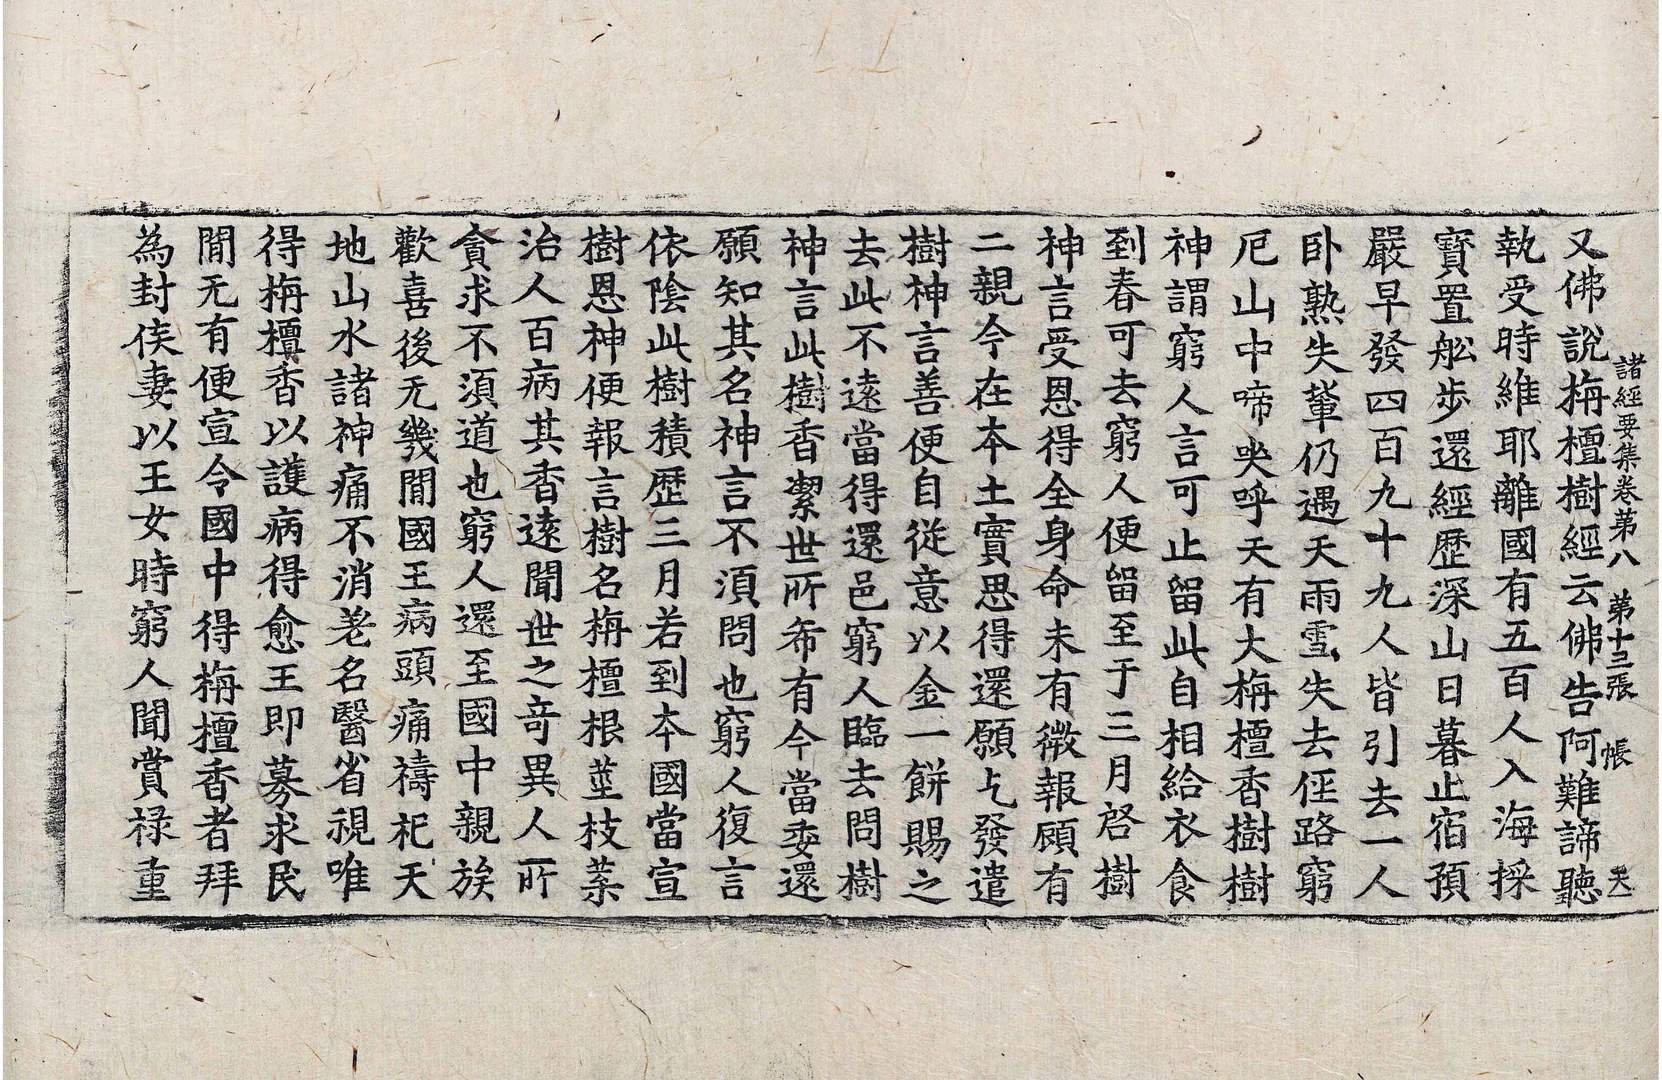 諸經要集卷第八 第十三張 帳
又佛說栴檀樹經云佛告阿難諦聽
執受時維耶離國有五百人入海採
寶置舩步還經歷深山日暮止宿預
嚴早發四百九十九人皆引去一人
卧熟失輩仍遇天雨雪失去俓路窮
厄山中啼哭呼天有大栴檀香樹樹
神謂窮人言可止留此自相給衣食
到春可去窮人便留至于三月啓樹
神言受恩得全身命未有微報顧有
二親今在本土實思得還願乞發遣
樹神言善便自從意以金一餅賜之
去此不遠當得還邑窮人臨去問樹
神言此樹香潔世所希有今當委還
願知其名神言不須問也窮人復言
依陰此樹積歷三月若到本國當宣
樹恩神便報言樹名栴檀根莖枝葉
治人百病其香遠聞世之奇異人所
貪求不須道也窮人還至國中親族
歡喜後无幾閒國王病頭痛禱杞天
地山水諸神痛不消差名醫省視唯
得栴檀香以護病得愈王即募求民
閒无有便宣令國中得栴檀香者拜
為封侯妻以王女時窮人聞賞祿重